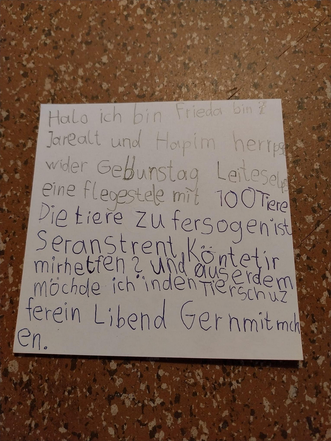 Halo ich bin Frieda bin 8
Jarealt und Hapim herrpst
wider Geburnstag Leiteselpt
eine flegestele mit 100Tiere
Die tiere zu fersogen ist
Seranstrent, Köntetir
mirhetfen? und auserdem
möchde ich inden Tierschuz
ferein Libend Gernmitmch
en.